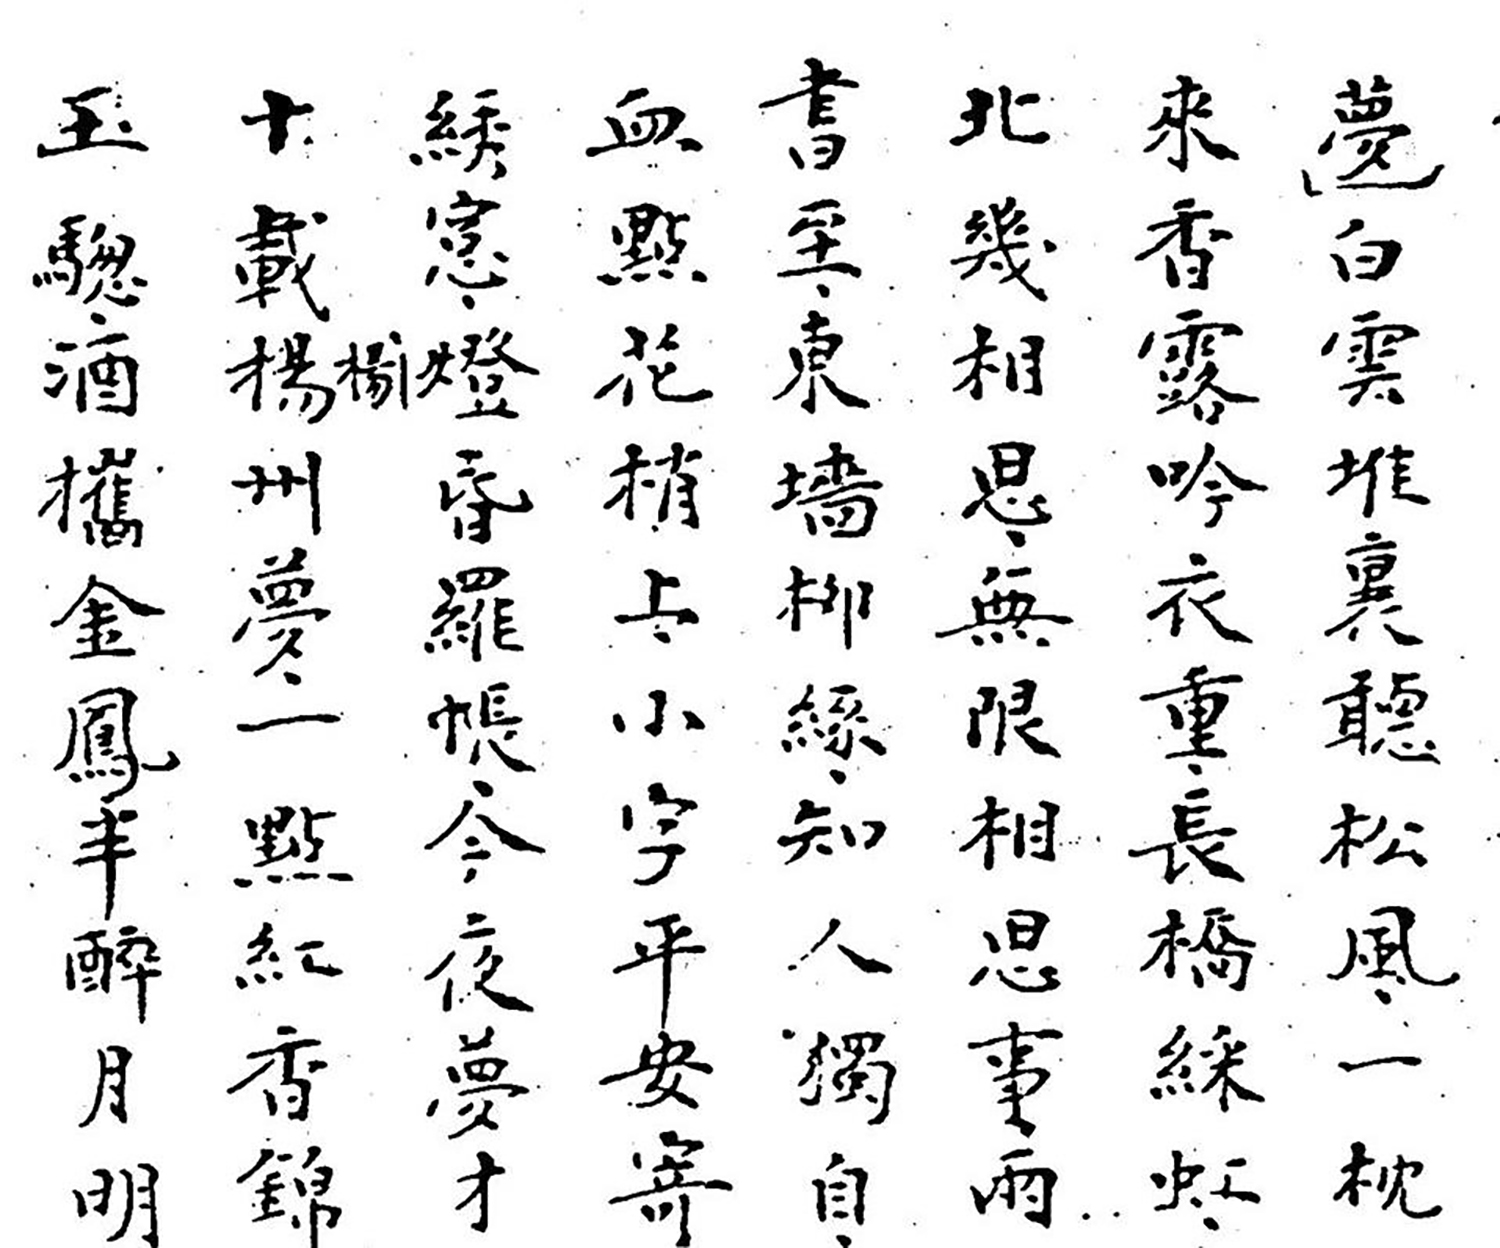 夢白雲堆裏聽松風一枕
來香露吟衣重長橋綵虹
北幾相思無限相思事雨
書至東墻柳絲知人獨自
血點花梢上小字平安寄
綉窓燈昏羅帳今夜夢才
十載楊州夢一點紅香錦
楊
玉驄酒攜金鳳半醉月明